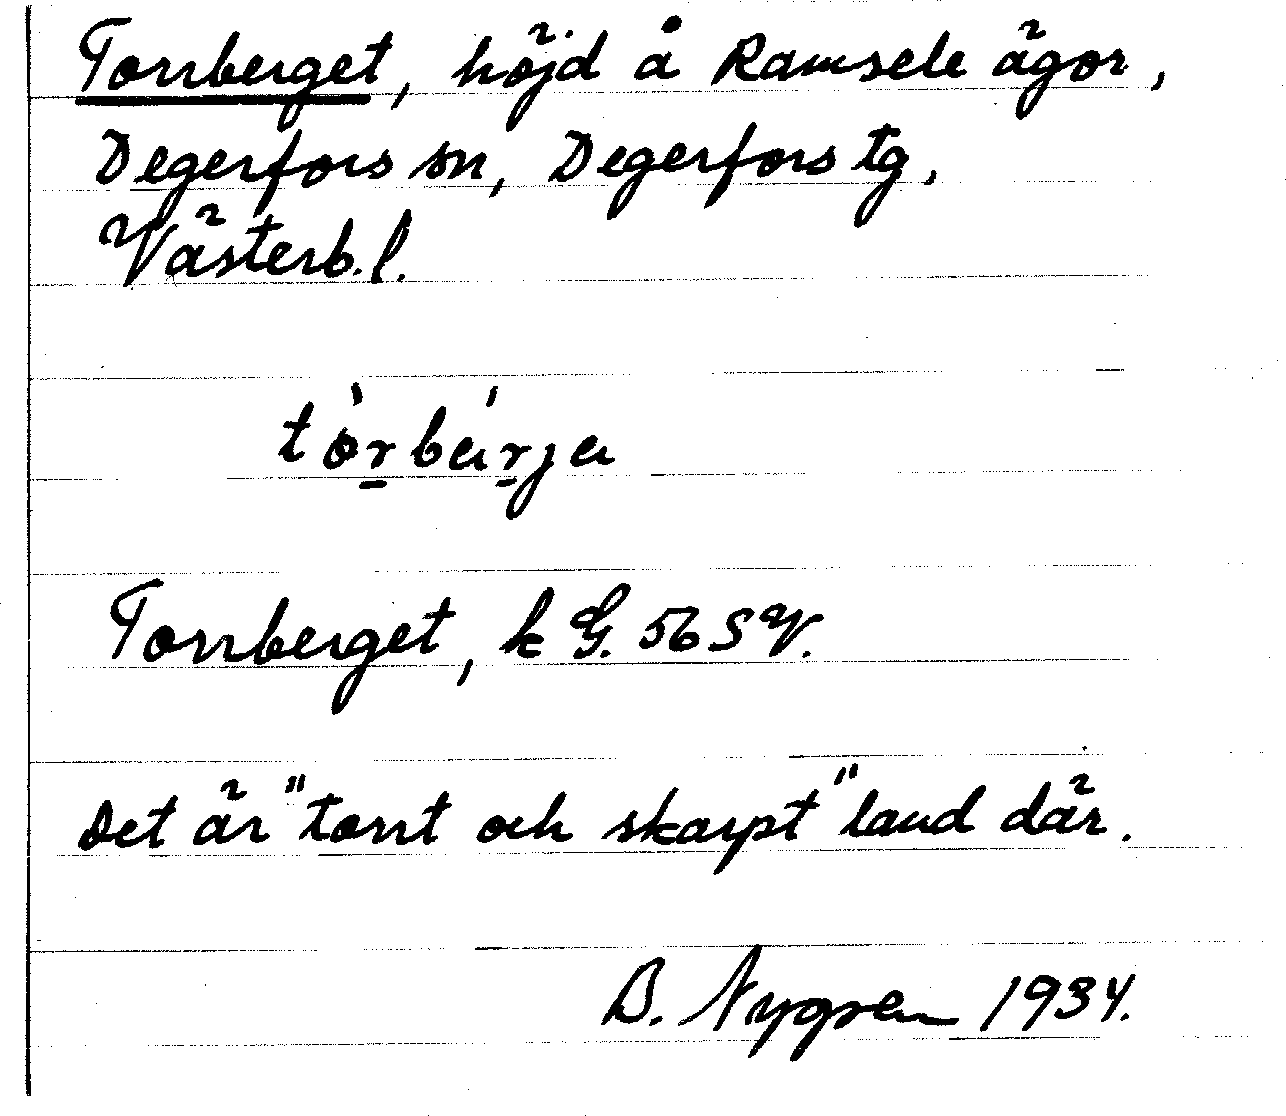 Torrberget, höjd å Ramsele ägor,
Degerfors sn, Degerfors tg,
Västerb. l.
tòr̲bár̲ja
Torrberget, k G. 56 SV.
Det är "torrt och skarpt" land där.
B. Nygren 1934.